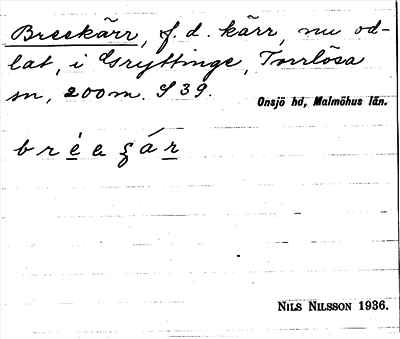 Breekärr, f. d. kärr, nu od-
lat, i Gryttinge, Torrlösa
sn, 200 m. S 39.
Onsjö hd, Malmöhus län.
b r é e g á r
NILS NILSSON 1936.